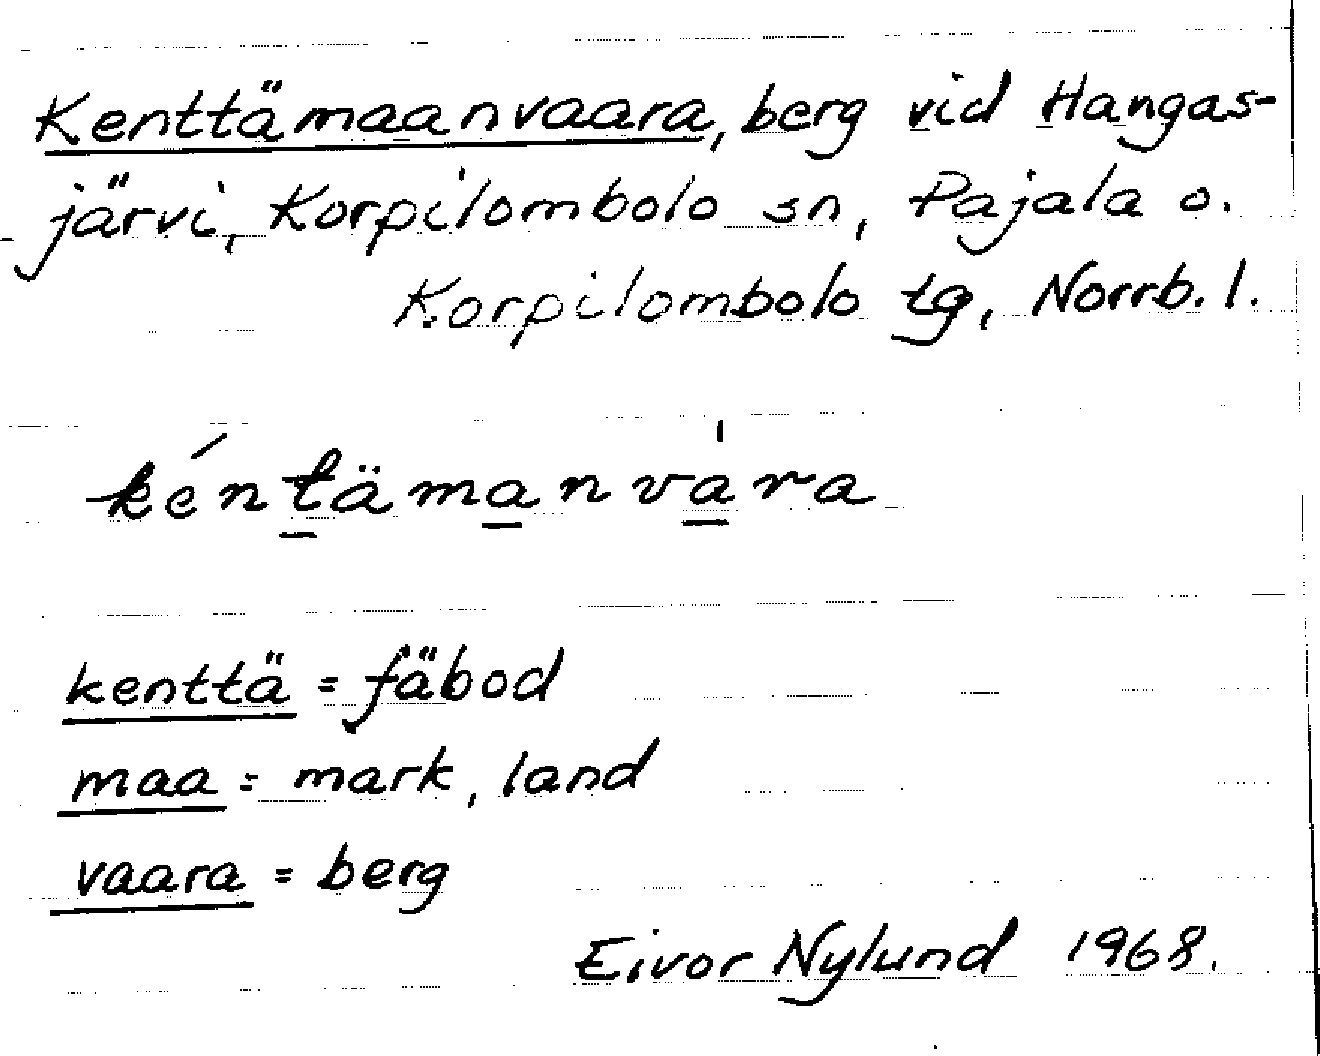 Kenttämaanvaara, berg vid Hangas-
järvi, Korpilombolo sn, Pajala o.
Korpilombolo tg, Norrb. l.
kéntämanvàra
kenttä = fäbod
maa = mark, land
vaara = berg
Eivor Nylund 1968.